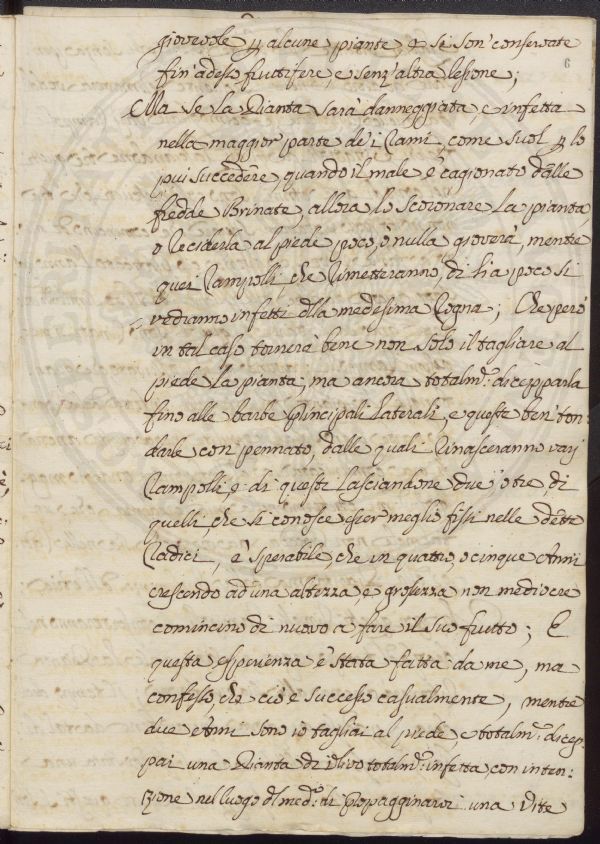 giovevole p alcune piante, e si son' conservate
6
fin'adesso fruttifere, e senz'altra lesione;
Ma se la Pianta sarà danneggiata, e infetta
nella maggior parte de i Rami, come suol p lo
più succedere, quando il male è cagionato dalle
fredde Brinate, allora lo scoronare la pianta,
o reciderla al piede poco, ò nulla gioverà, mentre
quei Rampolli che rimetteranno, di li a poco si
vedranno infetti dlla medesima Rogna; Che però
in tal caso tornerà bene non solo il tagliare al
piede la pianta, ma ancora totalmte: dicepparla
fino alle barbe Principali laterali, e queste ben' ton:
darle con pennato, dalle quali rinasceranno varj
Rampolli, e di questi lasciandone due, ò tre, di
quelli, che si conosce esser meglio fissi nelle dette
Radici, è sperabile, che in quattro, o cinque Anni
crescendo ad una altezza, e grossezza non mediocre
comincino di nuovo a fare il suo frutto; E
questa esperienza è stata fatta da me, ma
confesso, che ciò è successo casualmente, mentre
due Anni sono io tagliai al piede, e totalmte: dicep:
pai una Pianta di Ulivo totalmte: infetta, con inten:
zione nel luogo dl medo: di Propagginarvi una Vite